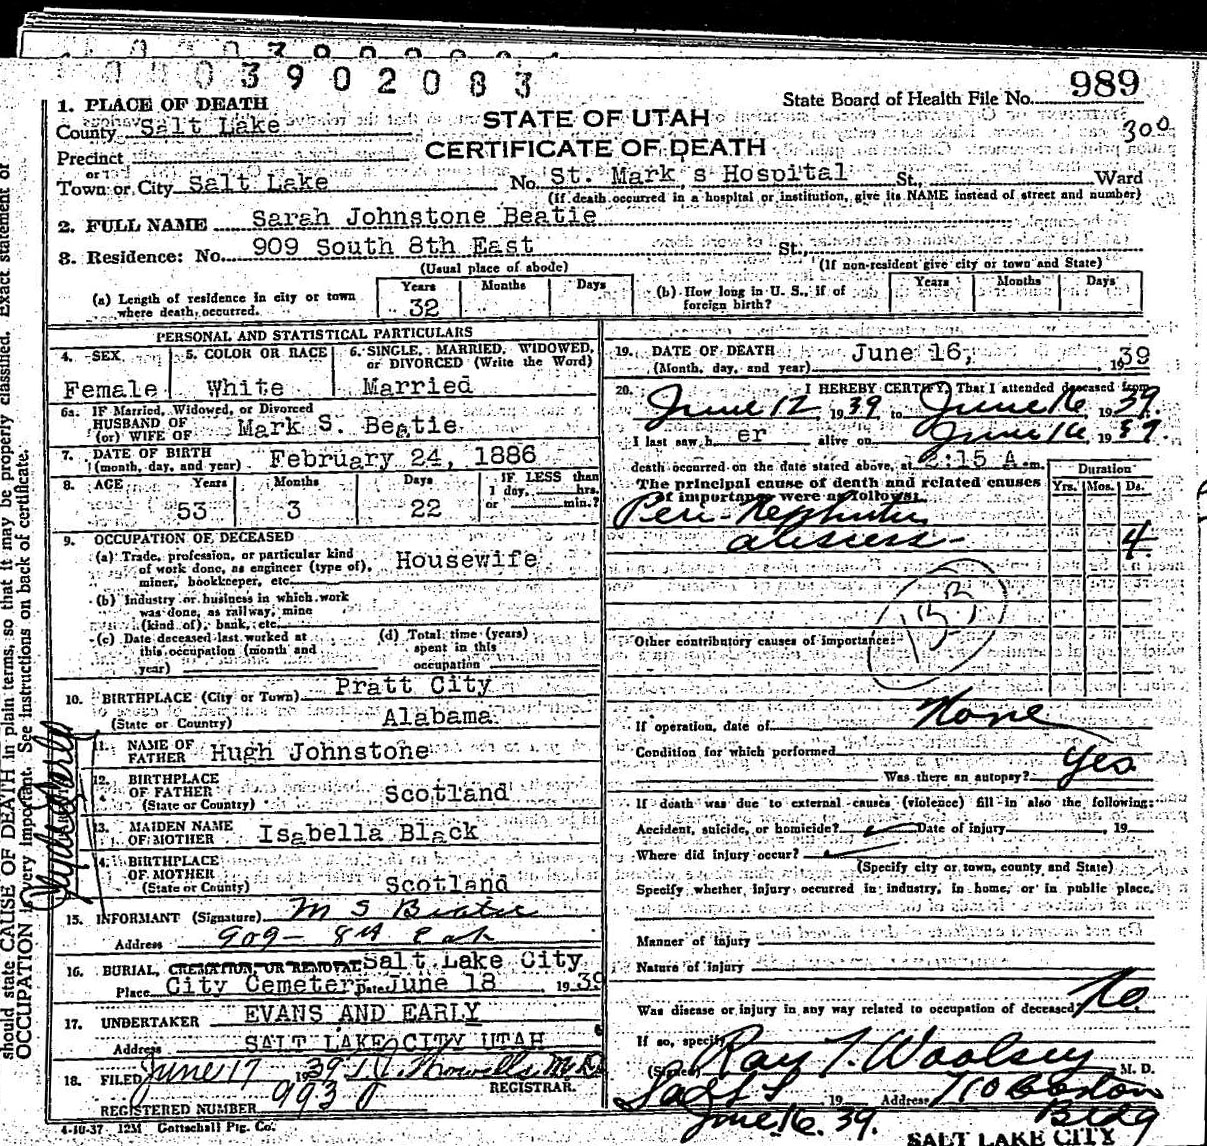 0403902083
989
State Board of Health File No.
300
1. PLACE OF DEATH
STATE OF UTAH
County Salt Lake
CERTIFICATE OF DEATH
Precinct
or
Town or City Salt Lake No. St. Mark,s Hospital St., Ward
(If death occurred in a hospital or institution, give its NAME instead of street and number)
2. FULL NAME Sarah Johnstone Beatie
3. Residence: No. 909 South 8th East St.,
(Usual place of abode) (If non-resident give city or town and State)
(a) Length of residence in city or town where death occurred. Years 32 Months Days
(b) How long in U. S., if of foreign birth? Years Months Days
PERSONAL AND STATISTICAL PARTICULARS
4. SEX 5. COLOR OR RACE 6. SINGLE, MARRIED, WIDOWED, or DIVORCED (Write the Word)
Female White Married
6a. IF Married, Widowed, or Divorced
HUSBAND OF
(or) WIFE OF Mark S. Beatie
7. DATE OF BIRTH
(month, day, and year) February 24, 1886
8. AGE Years Months Days IF LESS than
1 day, hrs.
or min.?
53 3 22
9. OCCUPATION OF DECEASED
(a) Trade, profession, or particular kind
of work done, as engineer (type of),
miner, bookkeeper, etc. Housewife
(b) Industry or business in which work
was done, as railway, mine
(kind of), bank, etc.
(c) Date deceased last worked at
this occupation (month and
year)
(d) Total time (years)
spent in this
occupation
10. BIRTHPLACE (City or Town) Pratt City
(State or Country) Alabama
11. NAME OF
FATHER Hugh Johnstone
12. BIRTHPLACE
OF FATHER
(State or Country) Scotland
13. MAIDEN NAME
OF MOTHER Isabella Black
14. BIRTHPLACE
OF MOTHER
(State or Country) Scotland
15. INFORMANT (Signature) M S Beatie
Address 909 - 8th East
16. BURIAL, CREMATION, OR REMOVAL Salt Lake City
Place City Cemetery Date June 18 1939
17. UNDERTAKER EVANS AND EARLY
Address SALT LAKE CITY UTAH
18. FILED June 17 1939
M.D.
REGISTRAR.
REGISTERED NUMBER 993
4-10-37 12M Gottschall Ptg. Co.
19. DATE OF DEATH June 16, 1939
(Month, day, and year)
20. I HEREBY CERTIFY, That I attended deceased from
June 12 1939 to June 16 1939.
I last saw h er alive on June 16 1939.
death occurred on the date stated above, at 2:15 A. m.
The principal cause of death and related causes
of importance were as follows:
Duration
Yrs. Mos. Ds.
Peri-Nephritic
abscess - 4
Other contributory causes of importance:
If operation, date of None
Condition for which performed
Was there an autopsy? Yes
If death was due to external causes (violence) fill in also the following:
Accident, suicide, or homicide? Date of injury , 19
Where did injury occur?
(Specify city or town, county and State)
Specify whether injury occurred in industry, in home, or in public place.
Manner of injury
Nature of injury
Was disease or injury in any way related to occupation of deceased? No
If so, specify
(Signed) Ray T. Woolsey M. D.
19 Address 710 Bldg
June 16. 39.
SALT LAKE CITY
should state CAUSE OF DEATH in plain terms, so that it may be properly classified. Exact statement of
OCCUPATION is very important. See instructions on back of certificate.